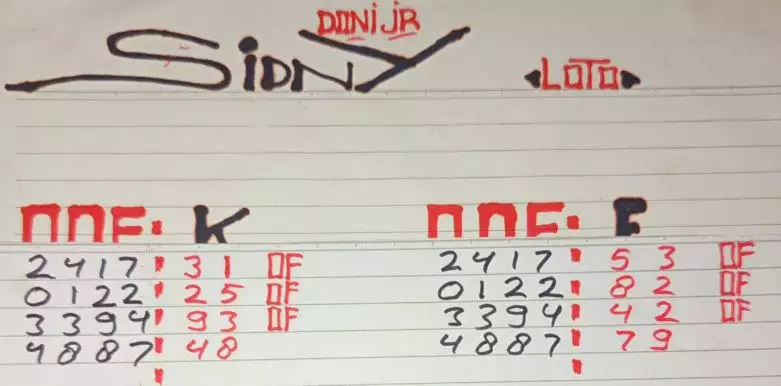 DONiJR
SiDNY
LOTO
NNF: K
2417: 31 OF
0122: 25 OF
3394: 93 OF
4887: 48
NNF: E
2417: 53 OF
0122: 82 OF
3394: 42 OF
4887: 79